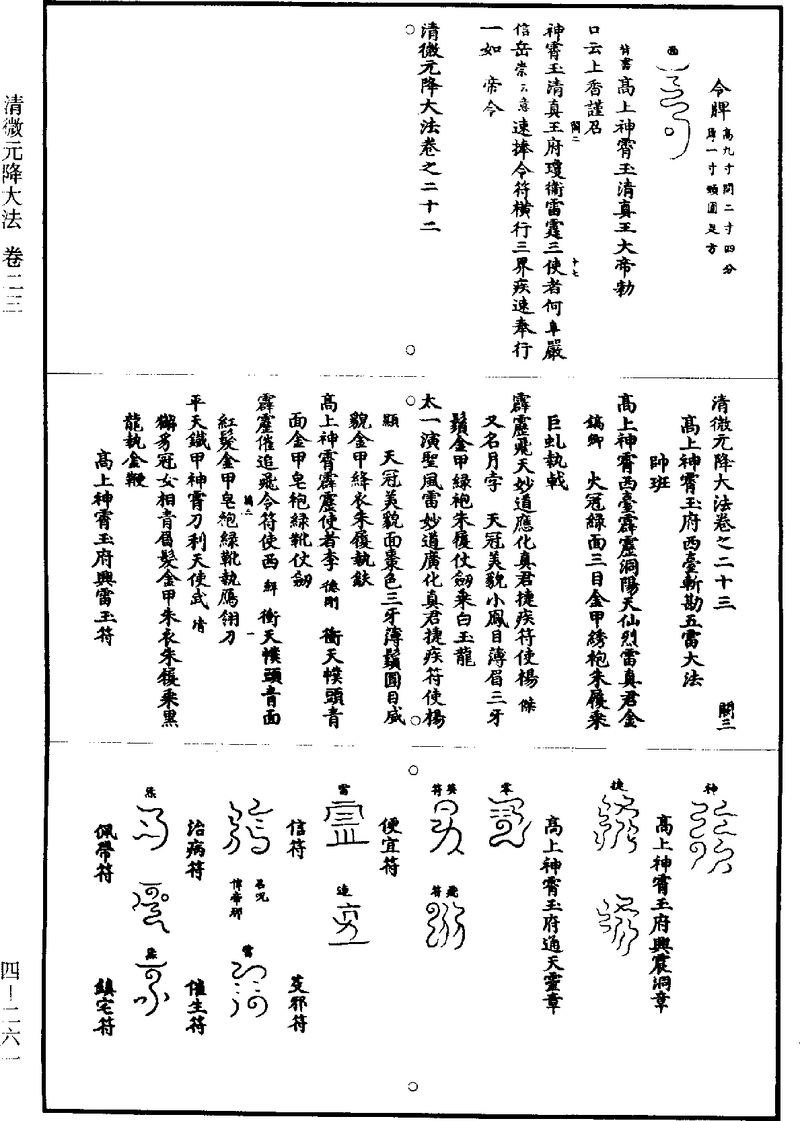 清微元降大法 卷二三
四—二六一
令牌 高九寸闊二寸四分
厚一寸頭圓足方
西
符書 高上神霄玉清真王大帝勑
口云上香謹召
神霄玉清真王府瓊衛雷霆三使者何昇嚴
信岳崇云意速捧令符橫行三界疾速奉行
一如 帝令
清微元降大法卷之二十二
清微元降大法卷之二十三 闕三
高上神霄玉府西臺斬勘五雷大法
帥班
高上神霄西臺霹靂洞陽天仙烈雷真君金
鎬卿 火冠綠面三目金甲綉袍朱履乘
巨虬執戟
霹靂飛天妙道應化真君捷疾符使楊 傑
又名月孛 天冠美貌小鳳目薄眉三牙
鬚金甲綠袍朱履仗劒乘白玉龍
太一演聖風雷妙道廣化真君捷疾符使楊
顯 天冠美貌面棗色三牙薄鬚圓目威
貌金甲絳衣朱履執鈇
高上神霄霹靂使者李 德剛 衝天幞頭青
面金甲皂袍綠靴仗劒
霹靂催追飛令符使西 衝天幞頭青面
紅髮金甲皂袍綠靴執鴈翎刀
平天鐵甲神霄刀利天使武
獬豸冠女相青眉髮金甲朱衣朱履乘黑
龍執金鞭
高上神霄玉府興雷玉符
神
高上神霄玉府興震洞章
捷
高上神霄玉府通天靈章
零
英符
飛符
便宜符
雷
達
信符
芟邪符
名咒
雷
治病符
催生符
佩帶符
鎮宅符